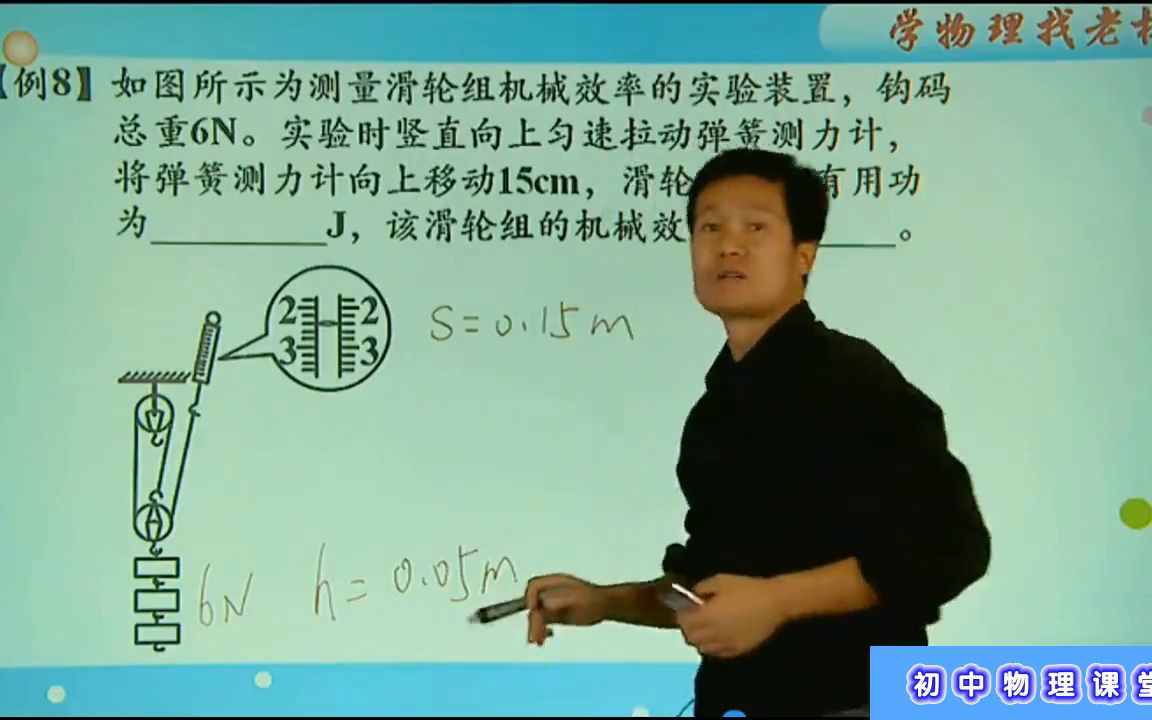 学物理找老
【例8】如图所示为测量滑轮组机械效率的实验装置，钩码
总重6N。实验时竖直向上匀速拉动弹簧测力计，
将弹簧测力计向上移动15cm，滑轮 有用功
为________J，该滑轮组的机械效 ________。
2 2
3 3
S=0.15m
6N h=0.05m
初中物理课堂